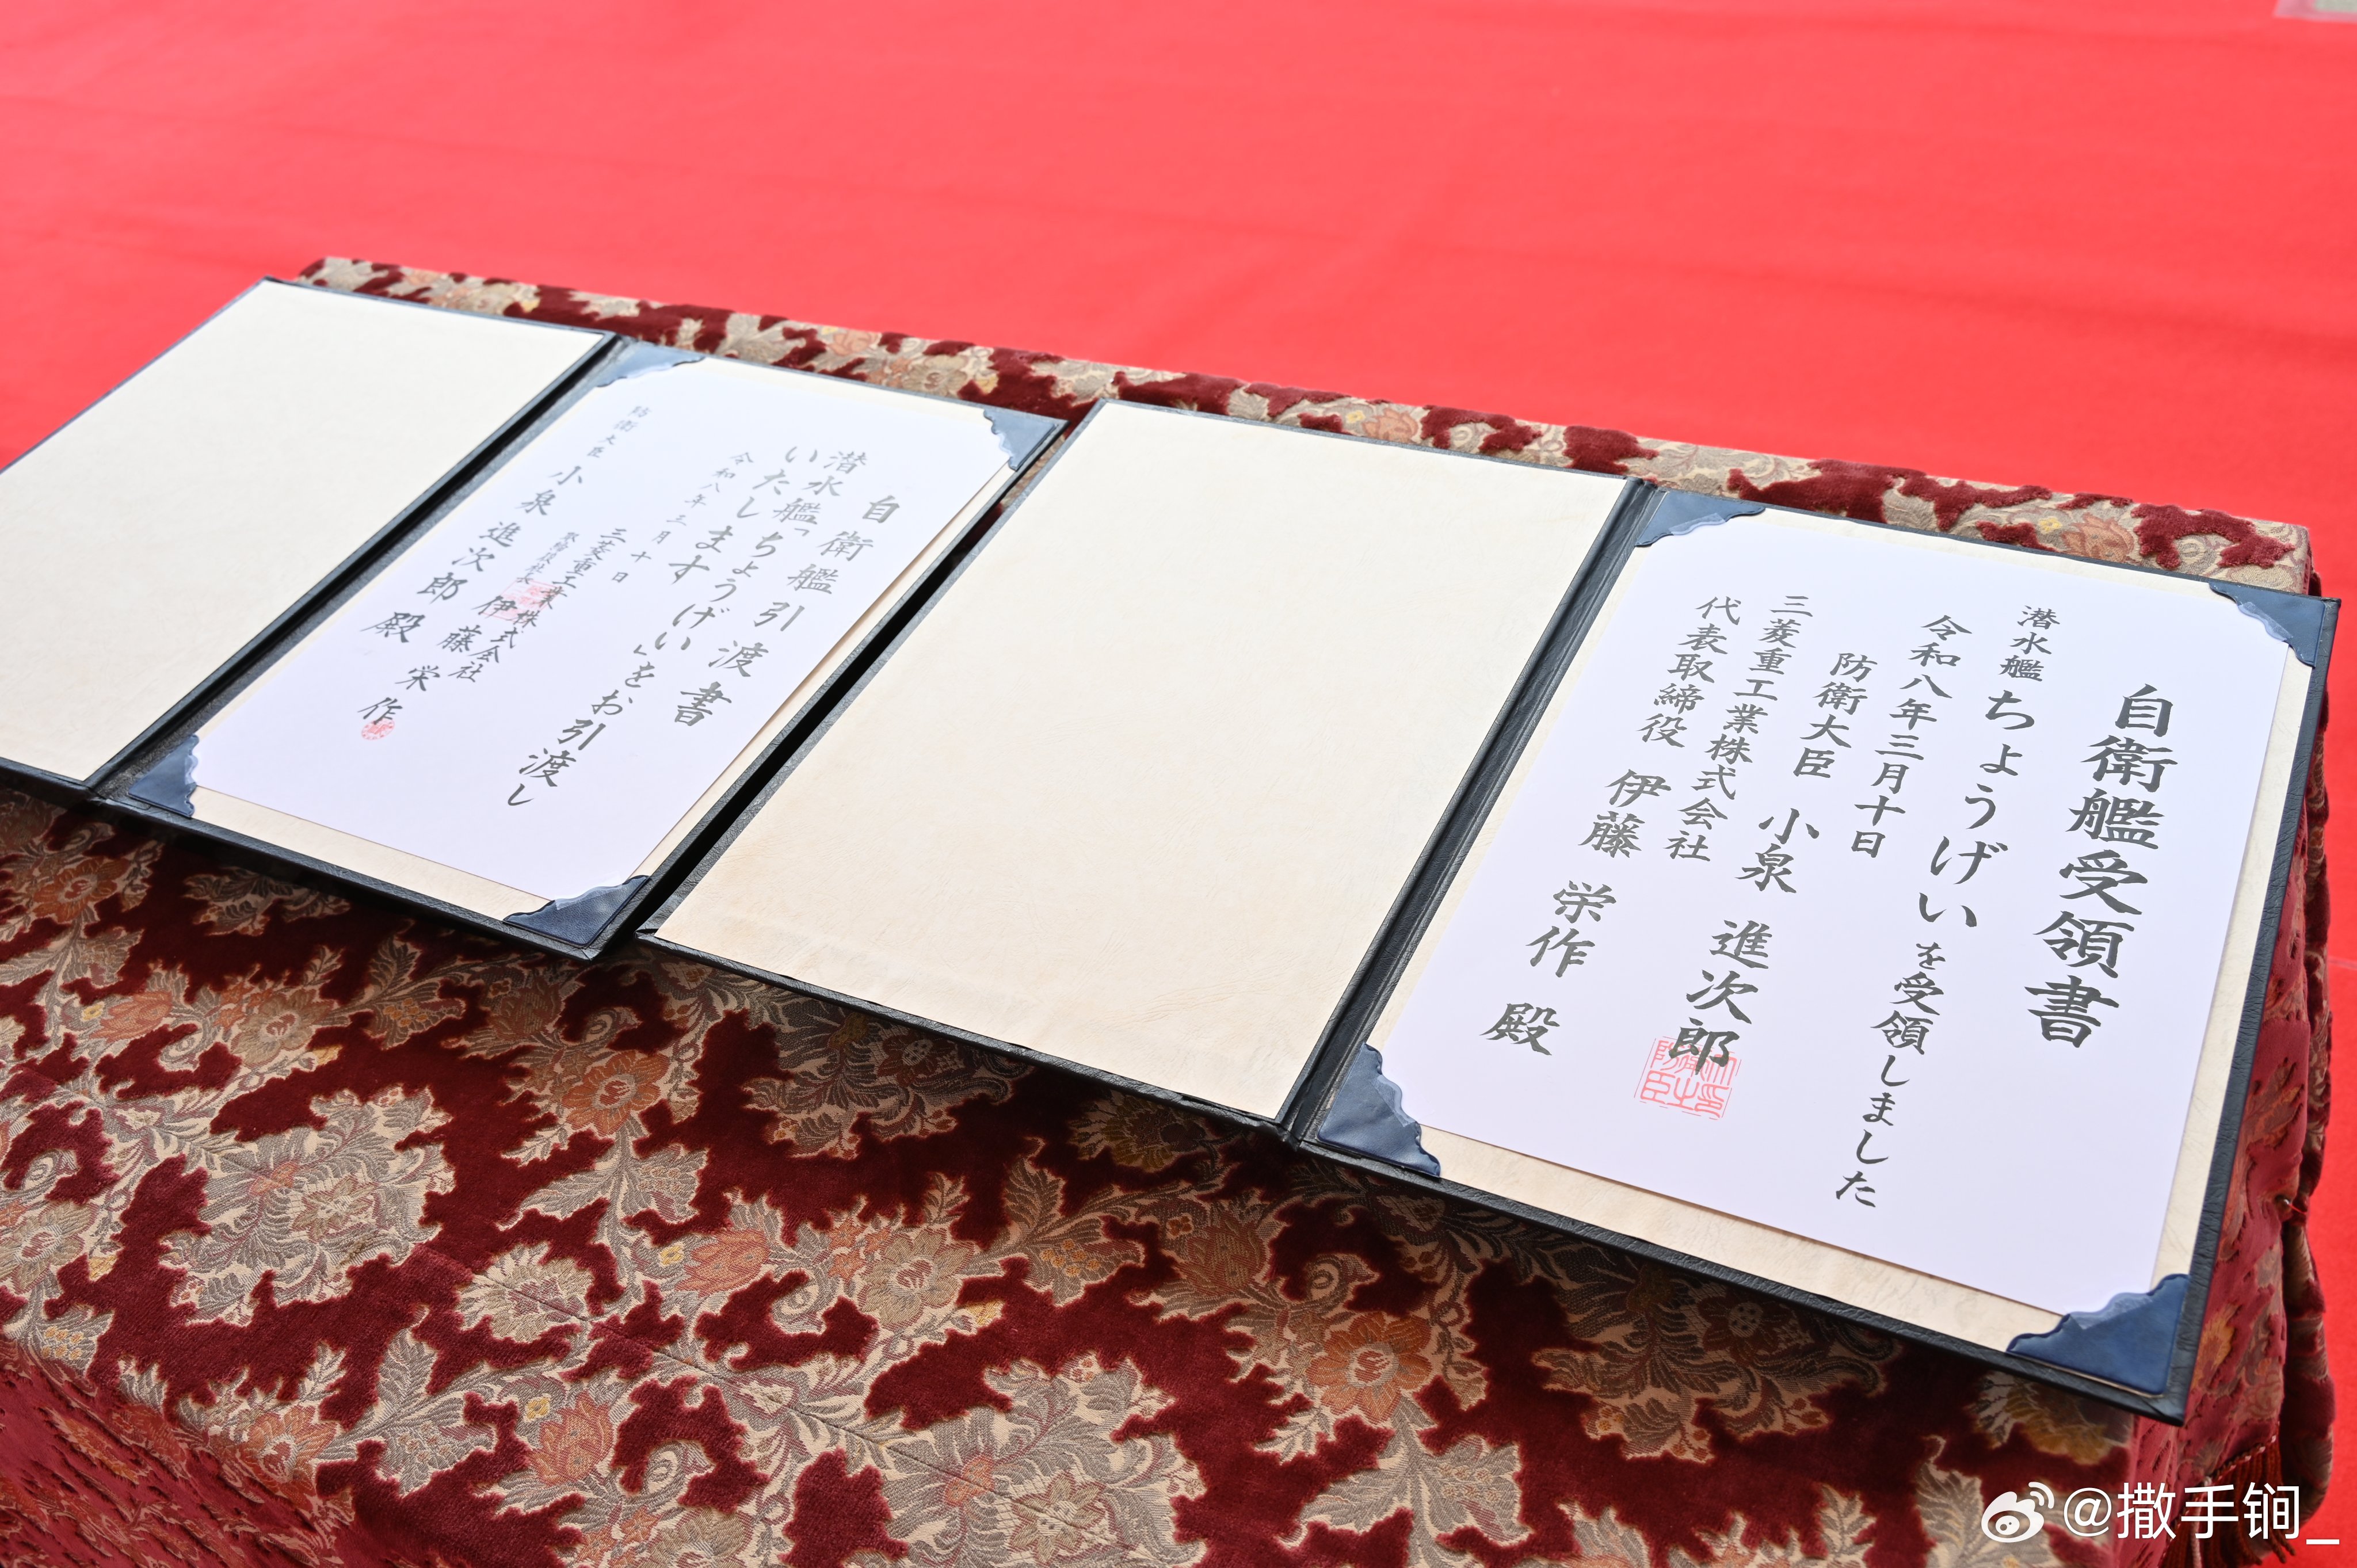 自衛艦引渡書
潜水艦「ちょうげい」をお引渡し
いたします
令和八年三月十日
三菱重工業株式会社
伊藤栄作
防衛大臣 小泉進次郎殿
自衛艦受領書
潜水艦ちょうげいを受領しました
令和八年三月十日
防衛大臣 小泉進次郎
三菱重工業株式会社
代表取締役 伊藤栄作殿
@撒手锏_